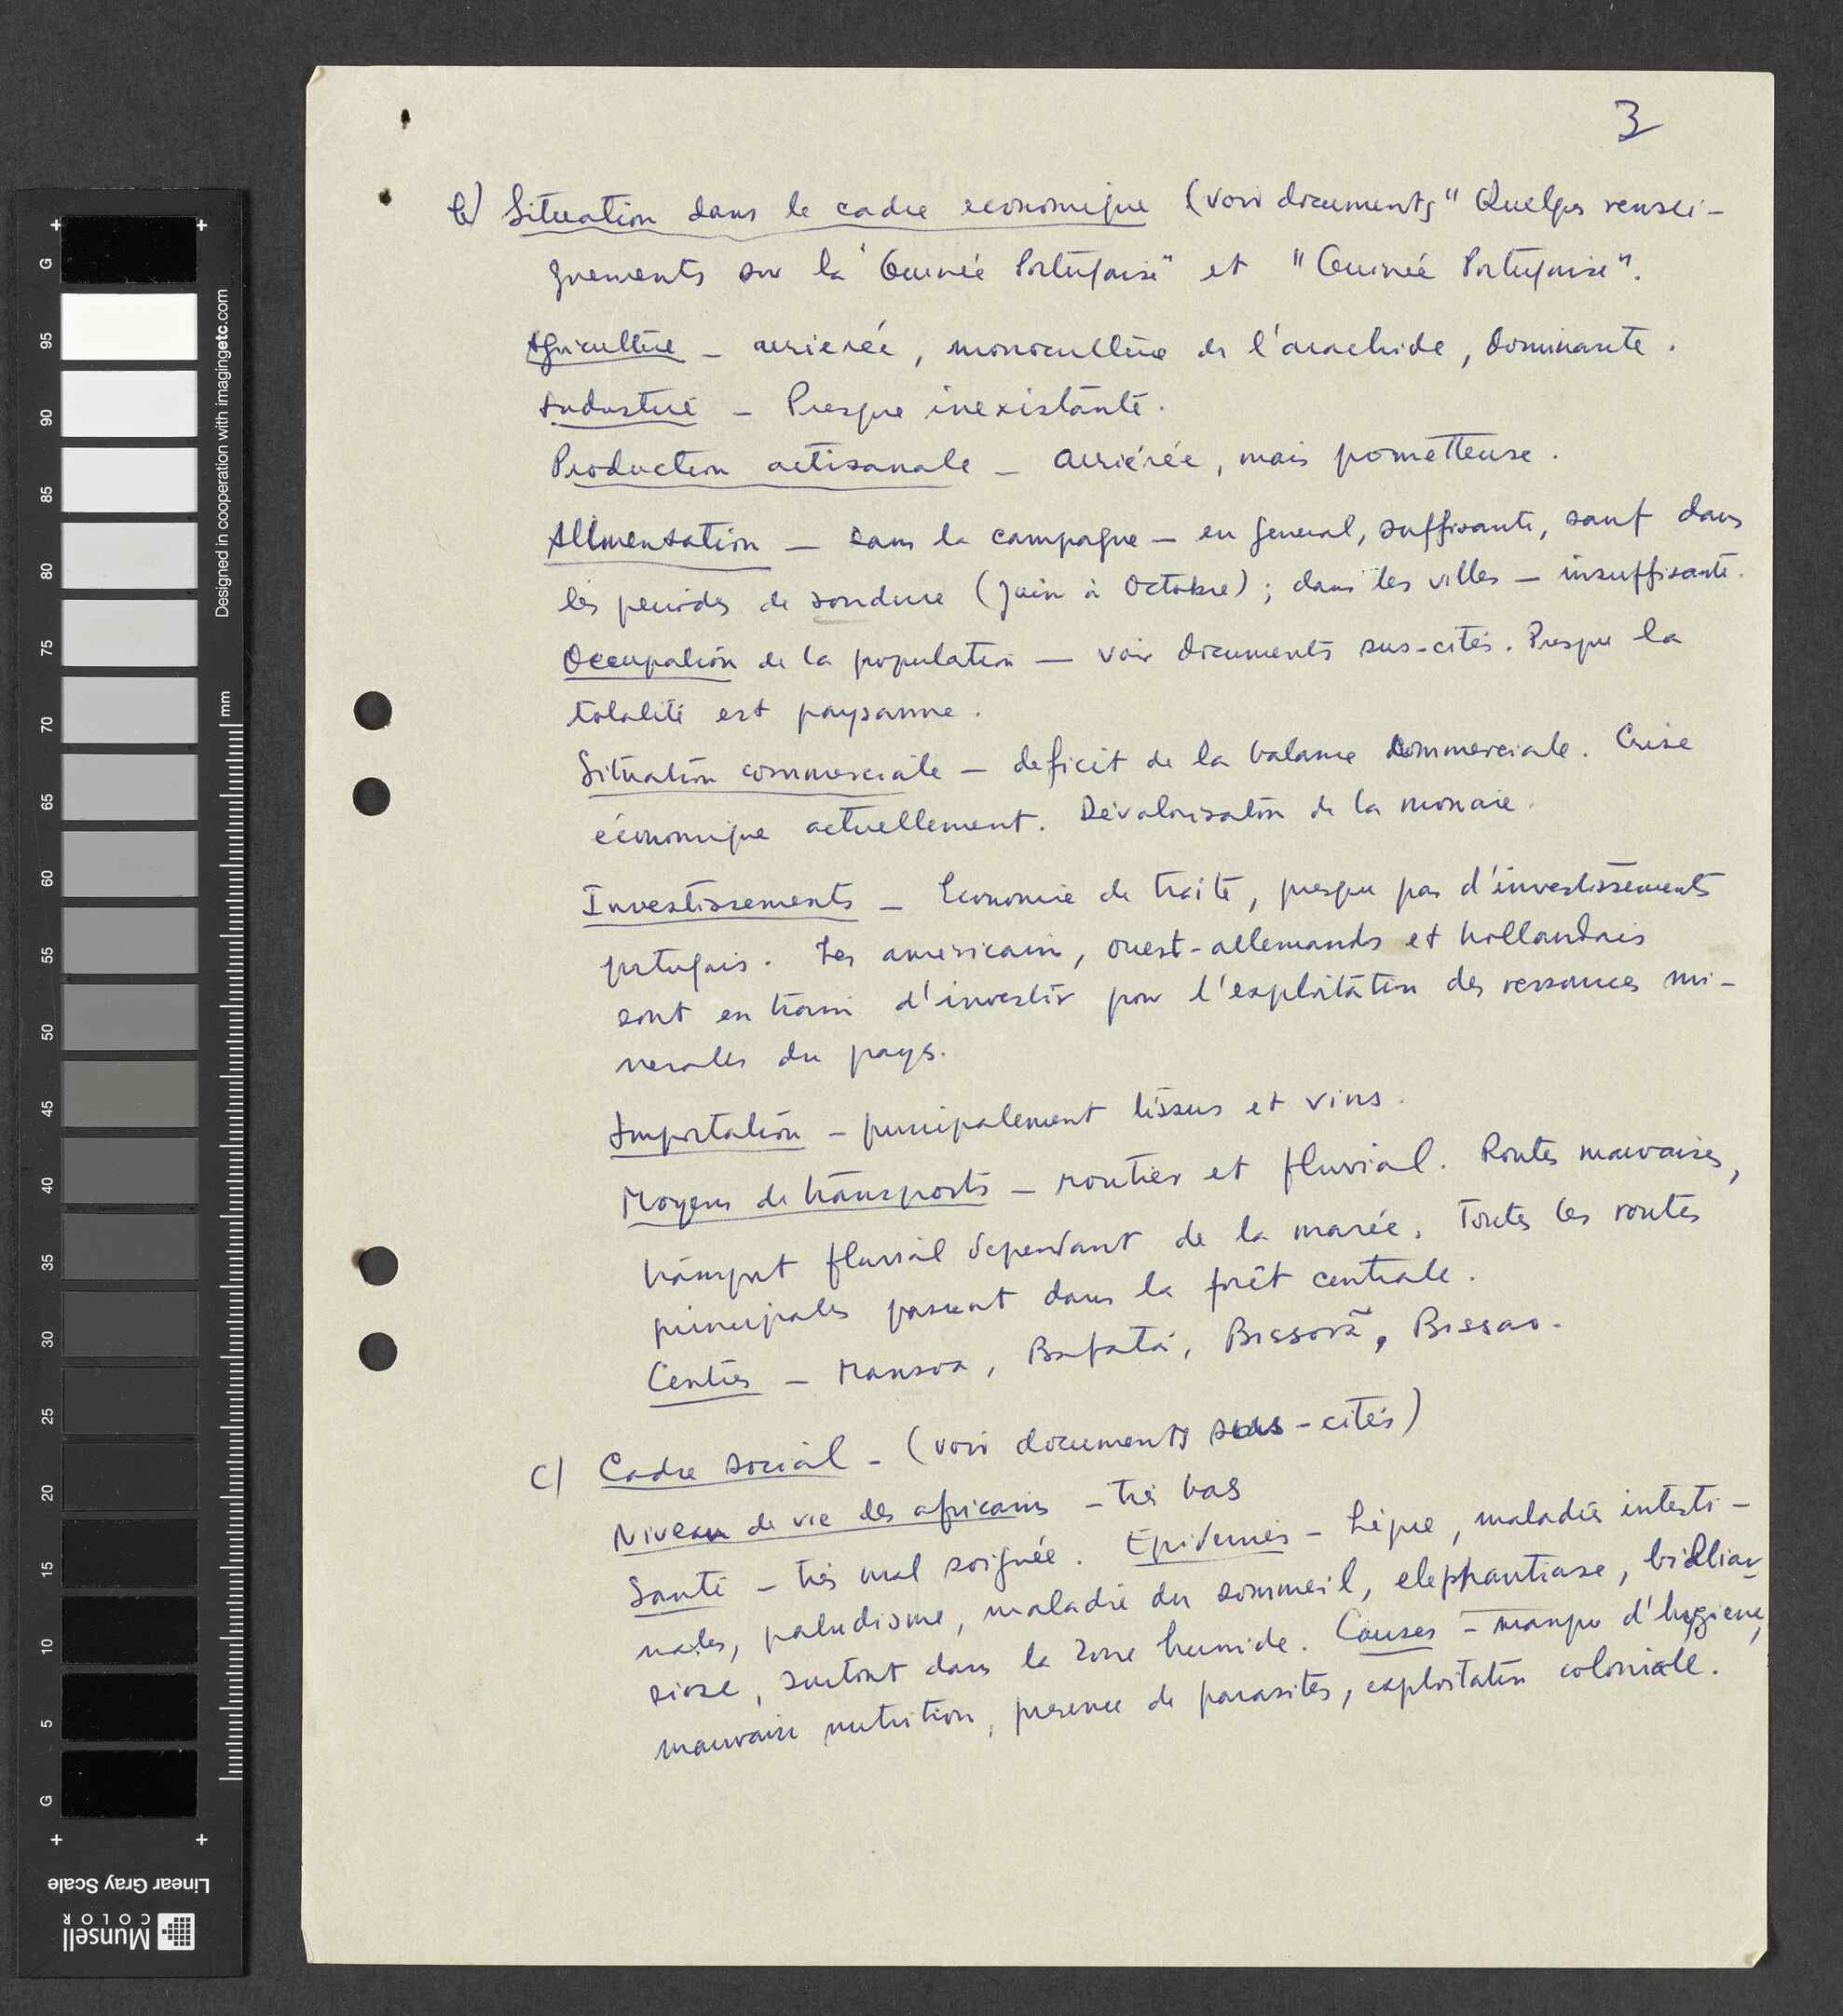 3
b) Situation dans le cadre economique (voir documents "Quelques rensei-
gnements sur la "Guinée Portugaise" et "Guinée Portugaise".
Agriculture - arrierée, monoculture de l'arachide, dominante.
Industrie - Presque inexistante.
Production artisanale - arriérée, mais prometteuse.
Alimentation - Dans la campagne - en general, suffisante, sauf dans
les periodes de soudure (Juin à Octobre); dans les villes - insuffisante.
Occupation de la population - voir documents sus-cités. Presque la
totalité est paysanne.
Situation commerciale - deficit de la balance commerciale. Crise
économique actuellement. Dévalorisation de la monaie.
Investissements - Economie de traite, presque pas d'investissements
portugais. Les americains, ouest-allemands et hollandais
sont en train d'investir pour l'exploitation des ressources mi-
nerales du pays.
Importation - principalement tissus et vins.
Moyens de transports - routier et fluvial. Routes mauvaises,
transport fluvial dependant de la marée. Toutes les routes
principales passent dans la forêt centrale.
Centres - Mansoa, Bafatá, Bissorã, Bissao.
c) Cadre social - (voir documents sus-cités)
Niveau de vie des africains - très bas
Santé - très mal soignée. Epidemies - Lèpre, maladies intesti-
nales, paludisme, maladie du sommeil, elephantiase, bilhar-
ziose, surtout dans la zone humide. Causes - manque d'hygiene,
mauvaise nutrition, presence de parasites, exploitation coloniale.
G
95
90
85
80
75
70
65
60
55
50
45
40
35
30
25
20
15
10
5
G
Designed in cooperation with imagingetc.com
mm
Linear Gray Scale
Munsell
COLOR